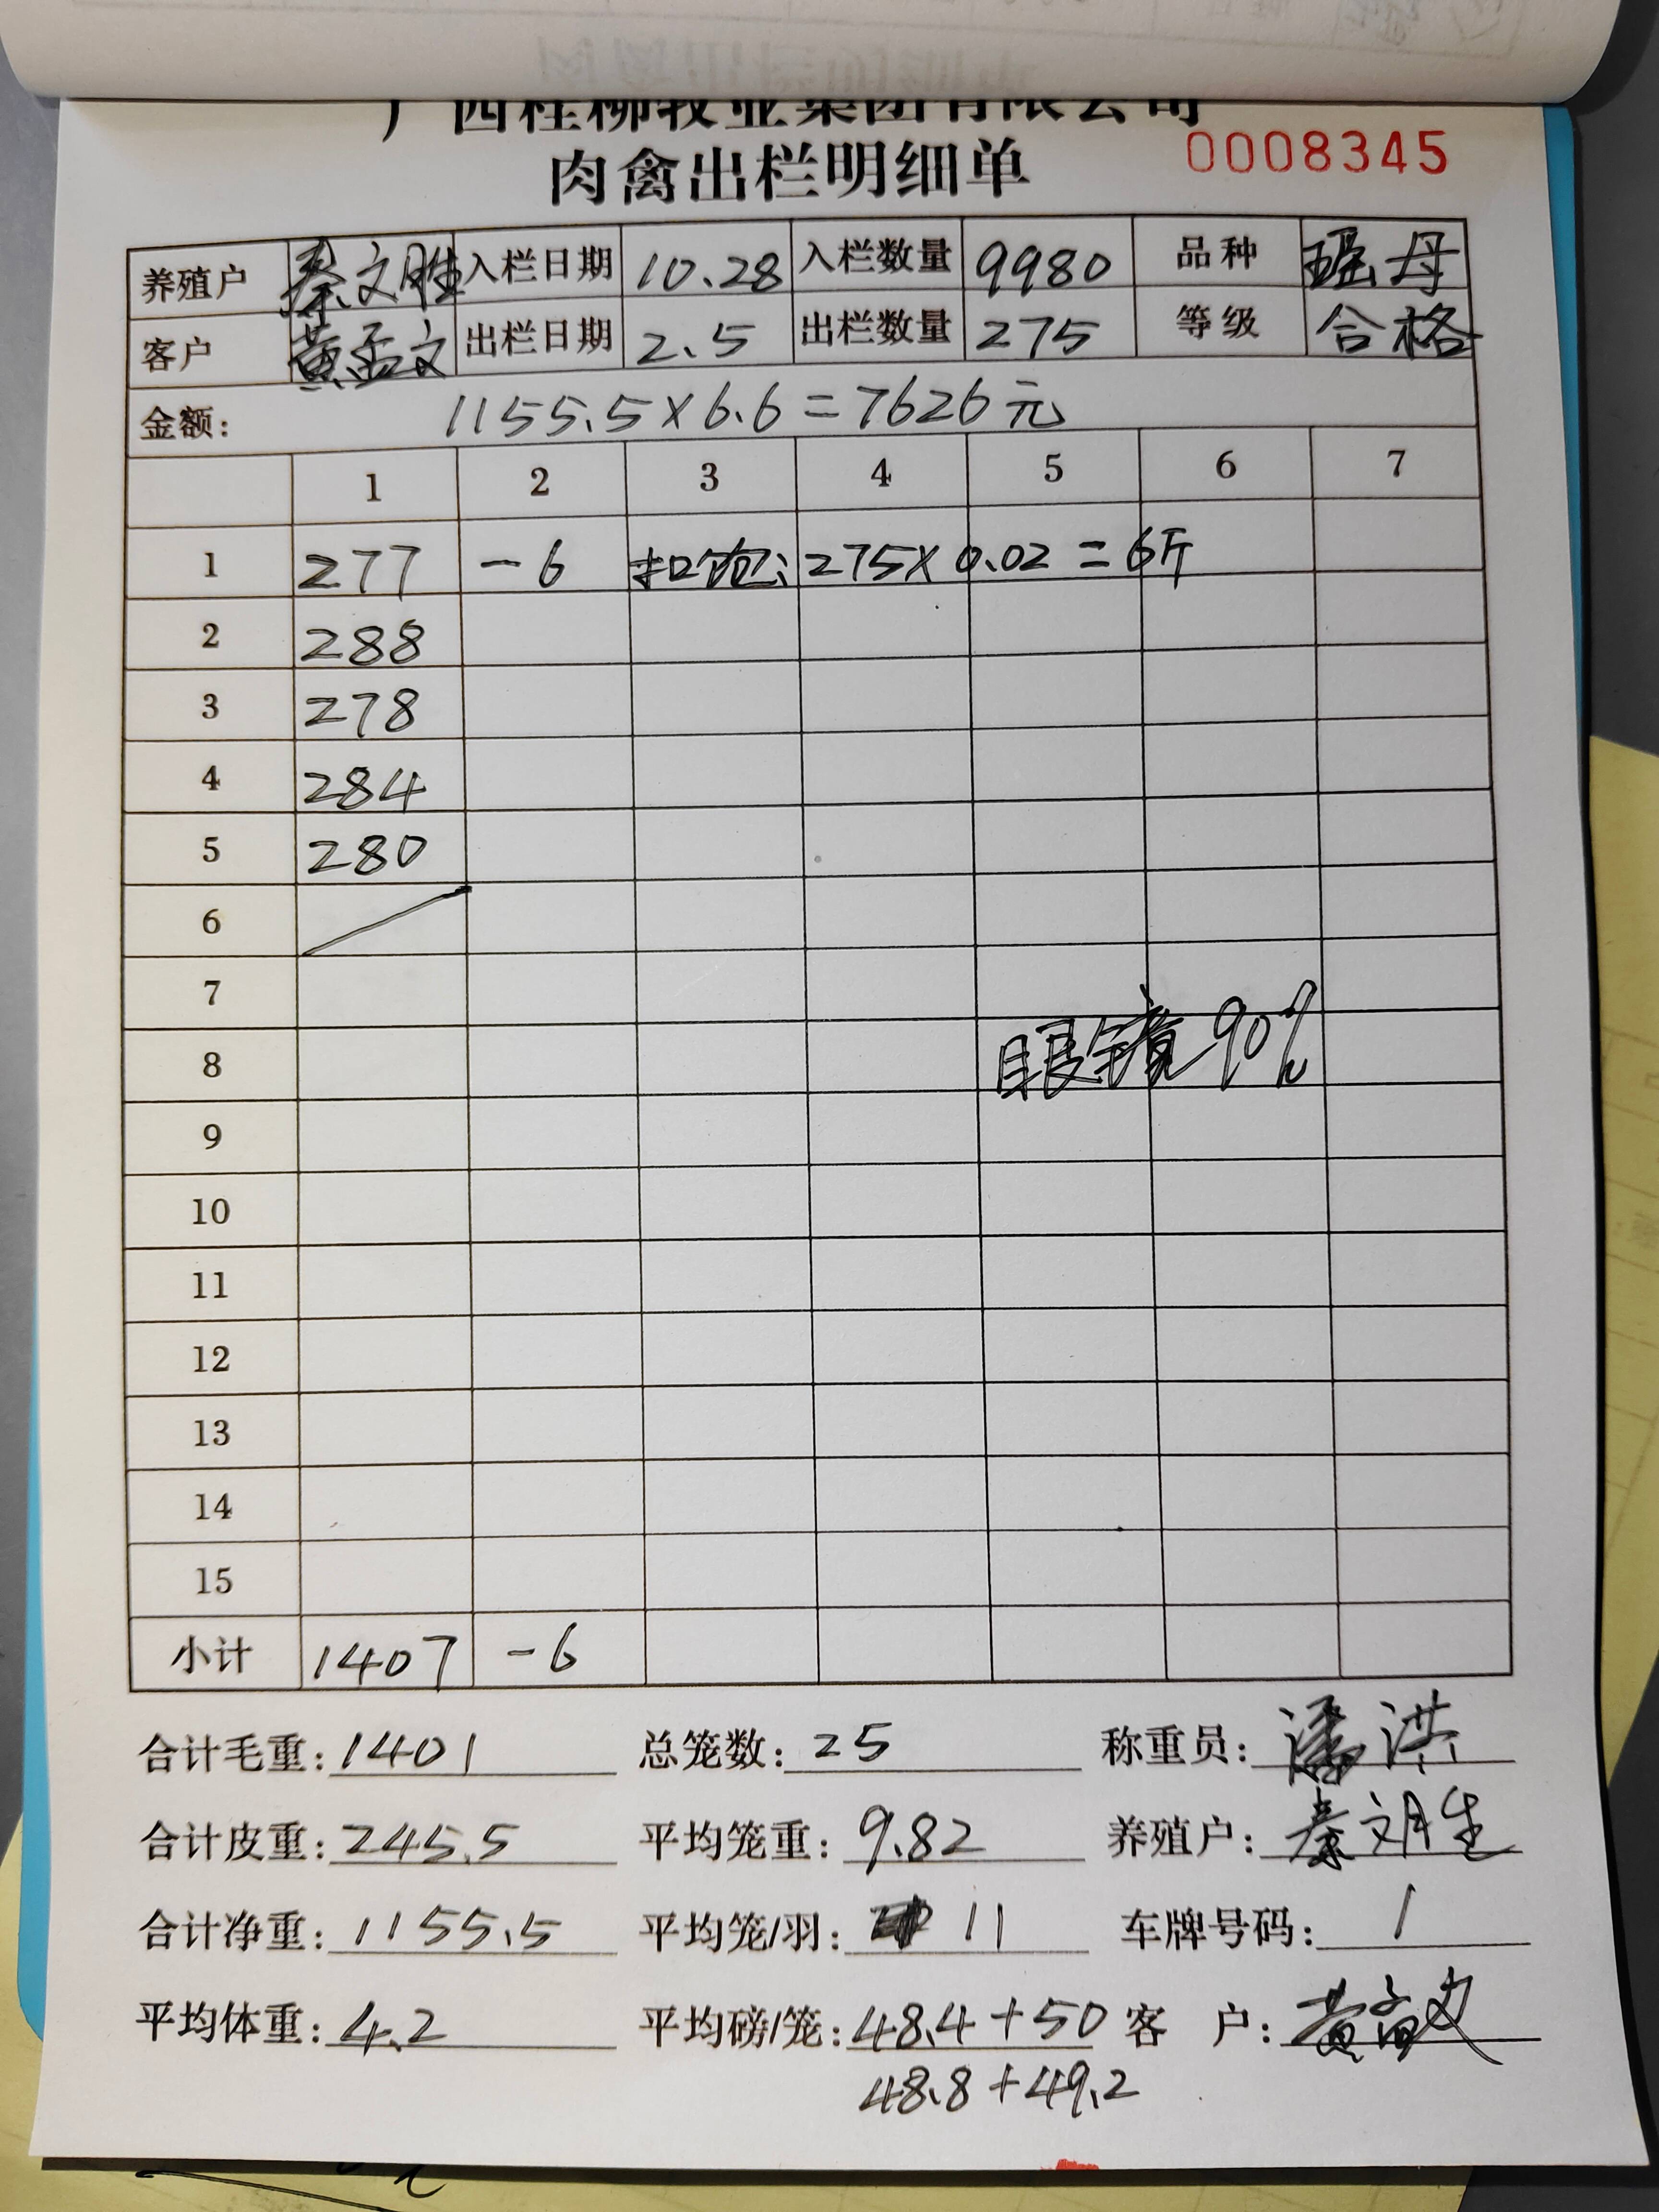 广西桂柳牧业集团有限公司
肉禽出栏明细单 0008345
养殖户 秦文胜 入栏日期 10.28 入栏数量 9980 品种 瑶母
客户 黄孟文 出栏日期 2.5 出栏数量 275 等级 合格
金额: 1155.5×6.6=7626元
1 2 3 4 5 6 7
1 277 -6 扣饱: 275×0.02=6斤
2 288
3 278
4 284
5 280
6
7
8 眼镜90%
9
10
11
12
13
14
15
小计 1407 -6
合计毛重: 1401 总笼数: 25 称重员: 潘洪
合计皮重: 245.5 平均笼重: 9.82 养殖户: 秦文胜
合计净重: 1155.5 平均笼/羽: 11 车牌号码: /
平均体重: 4.2 平均磅/笼: 48.4+50 客 户:
48.8+49.2